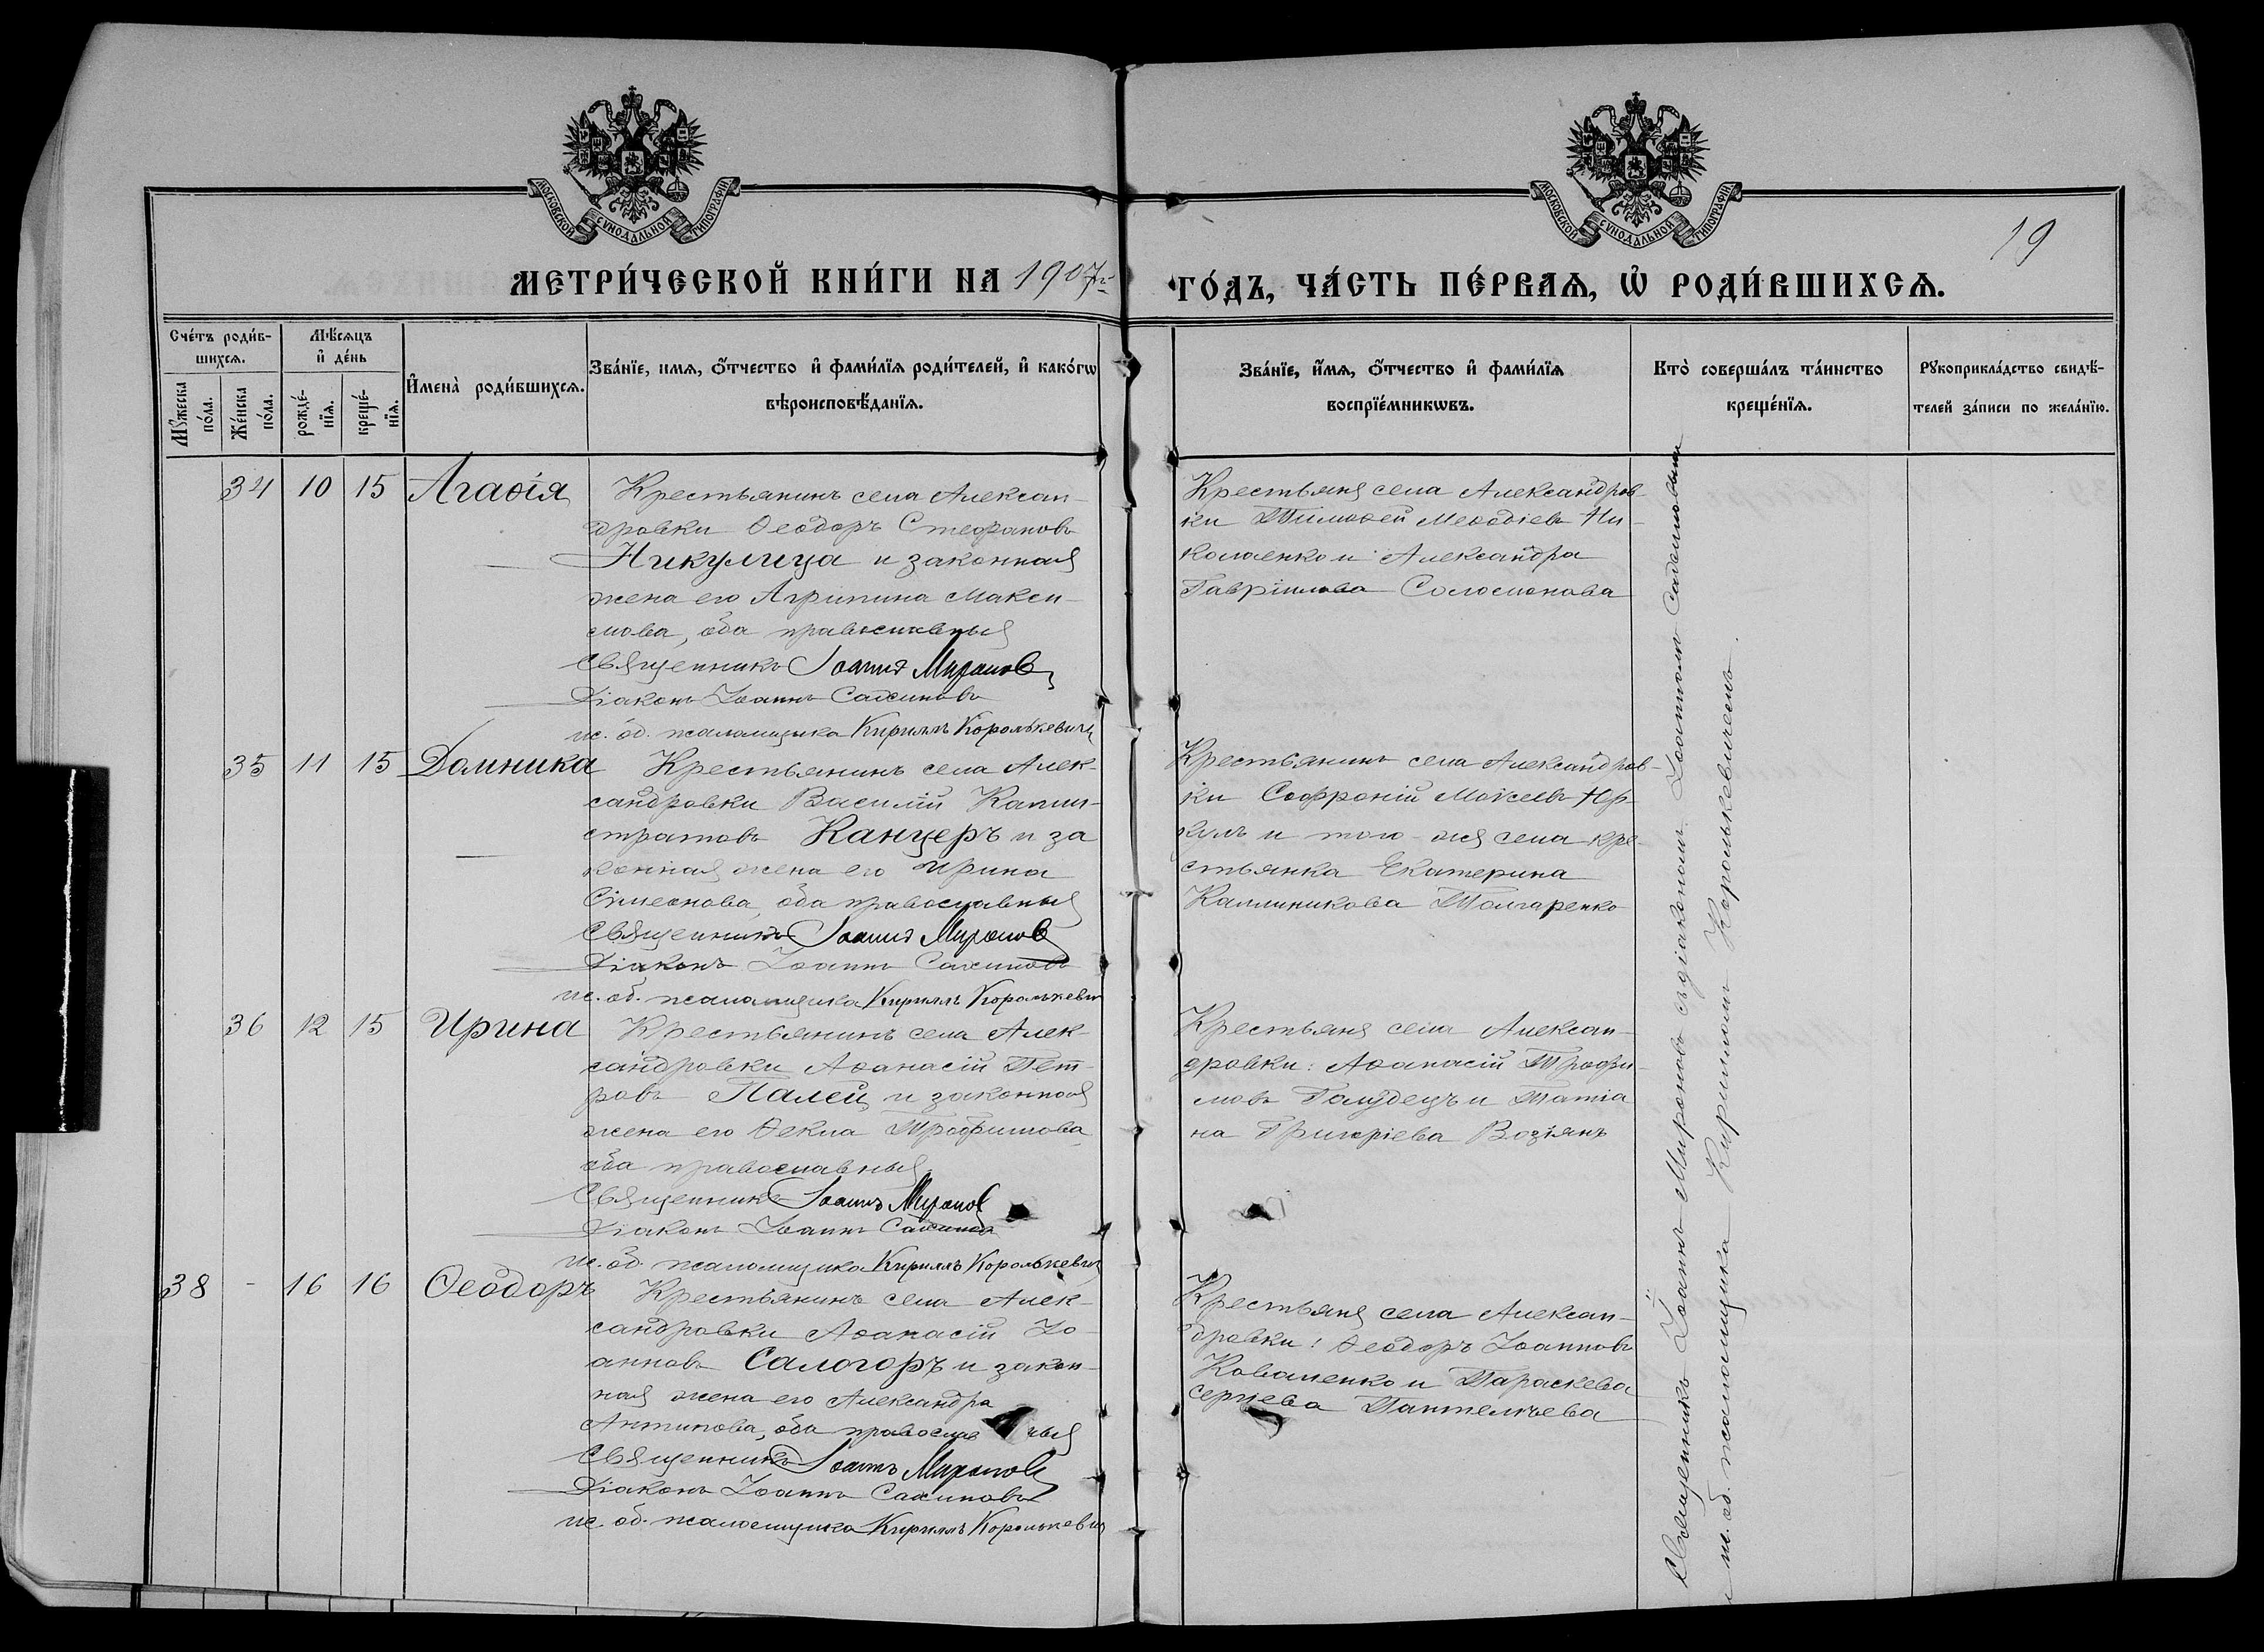 МОСКОВСКОЙ СѴНОДАЛЬНОЙ ТИПОГРАФІИ
МОСКОВСКОЙ СѴНОДАЛЬНОЙ ТИПОГРАФІИ
19
МЕТРИ́ЧЕСКОЙ КНИ́ГИ НА 1907й ГО́ДЪ, ЧА́СТЬ ПЕ́РВАѦ, Ѡ҆ РОДИ́ВШИХСѦ.
Сче́тъ роди́в-
шихсѧ.
Мꙋ́жеска по́ла.
Же́нска по́ла.
Мѣ́сѧцъ
и҆ де́нь
рожде́-
нїѧ.
креще́-
нїѧ.
И҆мена̀ роди́вшихсѧ.
Зва́нїе, имѧ, ѻ҆́тчество и҆ фами́лїѧ роди́телей, и҆ како́гѡ
вѣроисповѣ́данїѧ.
Зва́нїе, и҆́мѧ, ѻ҆́тчество и҆ фами́лїѧ
воспрїе́мникѡвъ.
Кто̀ соверша́лъ та́инство
креще́нїѧ.
Рꙋкоприкла́дство свидѣ́-
телей за́писи по жела́нїю.
34 10 15 Агаѳія
Крестьянинъ села Алексан-
дровки Ѳеодоръ Стефановъ
Никулица и законная
жена его Агрипина Макси-
мова, оба православныя
Священникъ Іоаннъ Мироновъ
Діаконъ Іоаннъ
ис. об. псаломщика Кириллъ Королькевичъ
Крестьяне села Александров-
ки Тимоѳей Меѳодіевъ Ни-
коленко и Александра
Гавріилова Соломонова
35 11 15 Домника
Крестьянинъ села Алек-
сандровки Василій Капи-
стратовъ Канцеръ и за
конная жена его Ирина
Сімеонова, оба православныя
Священникъ Іоаннъ Мироновъ
Діаконъ Іоаннъ
ис. об. псаломщика Кириллъ Королькевич
Крестьянинъ села Александров-
ки Софроній Моѵсеевъ
и того-же села кре-
стьянка Екатерина
Каллиникова
36 12 15 Ирина
Крестьянинъ села Алек-
сандровки Аѳанасій Пет-
ровъ Палей и законная
жена его Ѳекла Трофимова,
оба православныя
Священникъ Іоаннъ Мироновъ
Діаконъ Іоаннъ
ис. об. псаломщика Кириллъ Королькевич
Крестьяне села Алексан-
дровки: Аѳанасій Трофи-
мовъ Голудецъ и Татіа
на Григоріева Возіянъ
38 - 16 16 Ѳеодоръ
Крестьянинъ села Алек-
сандровки Аѳанасій Іо-
анновъ Салогоръ и закон-
ная жена его Александра
Антипова, оба православныя
Священникъ Іоаннъ Мироновъ
Діаконъ Іоаннъ
ис. об. псаломщика Кириллъ Королькевич
Крестьяне села Алексан-
дровки: Ѳеодоръ Іоанновъ
Коваленко и Параскева
Сергіева Пантелѣева
Священникъ Іоаннъ Мироновъ съ діакономъ Іоанномъ
и ис. об. псаломщика Кирилломъ Королькевичемъ.